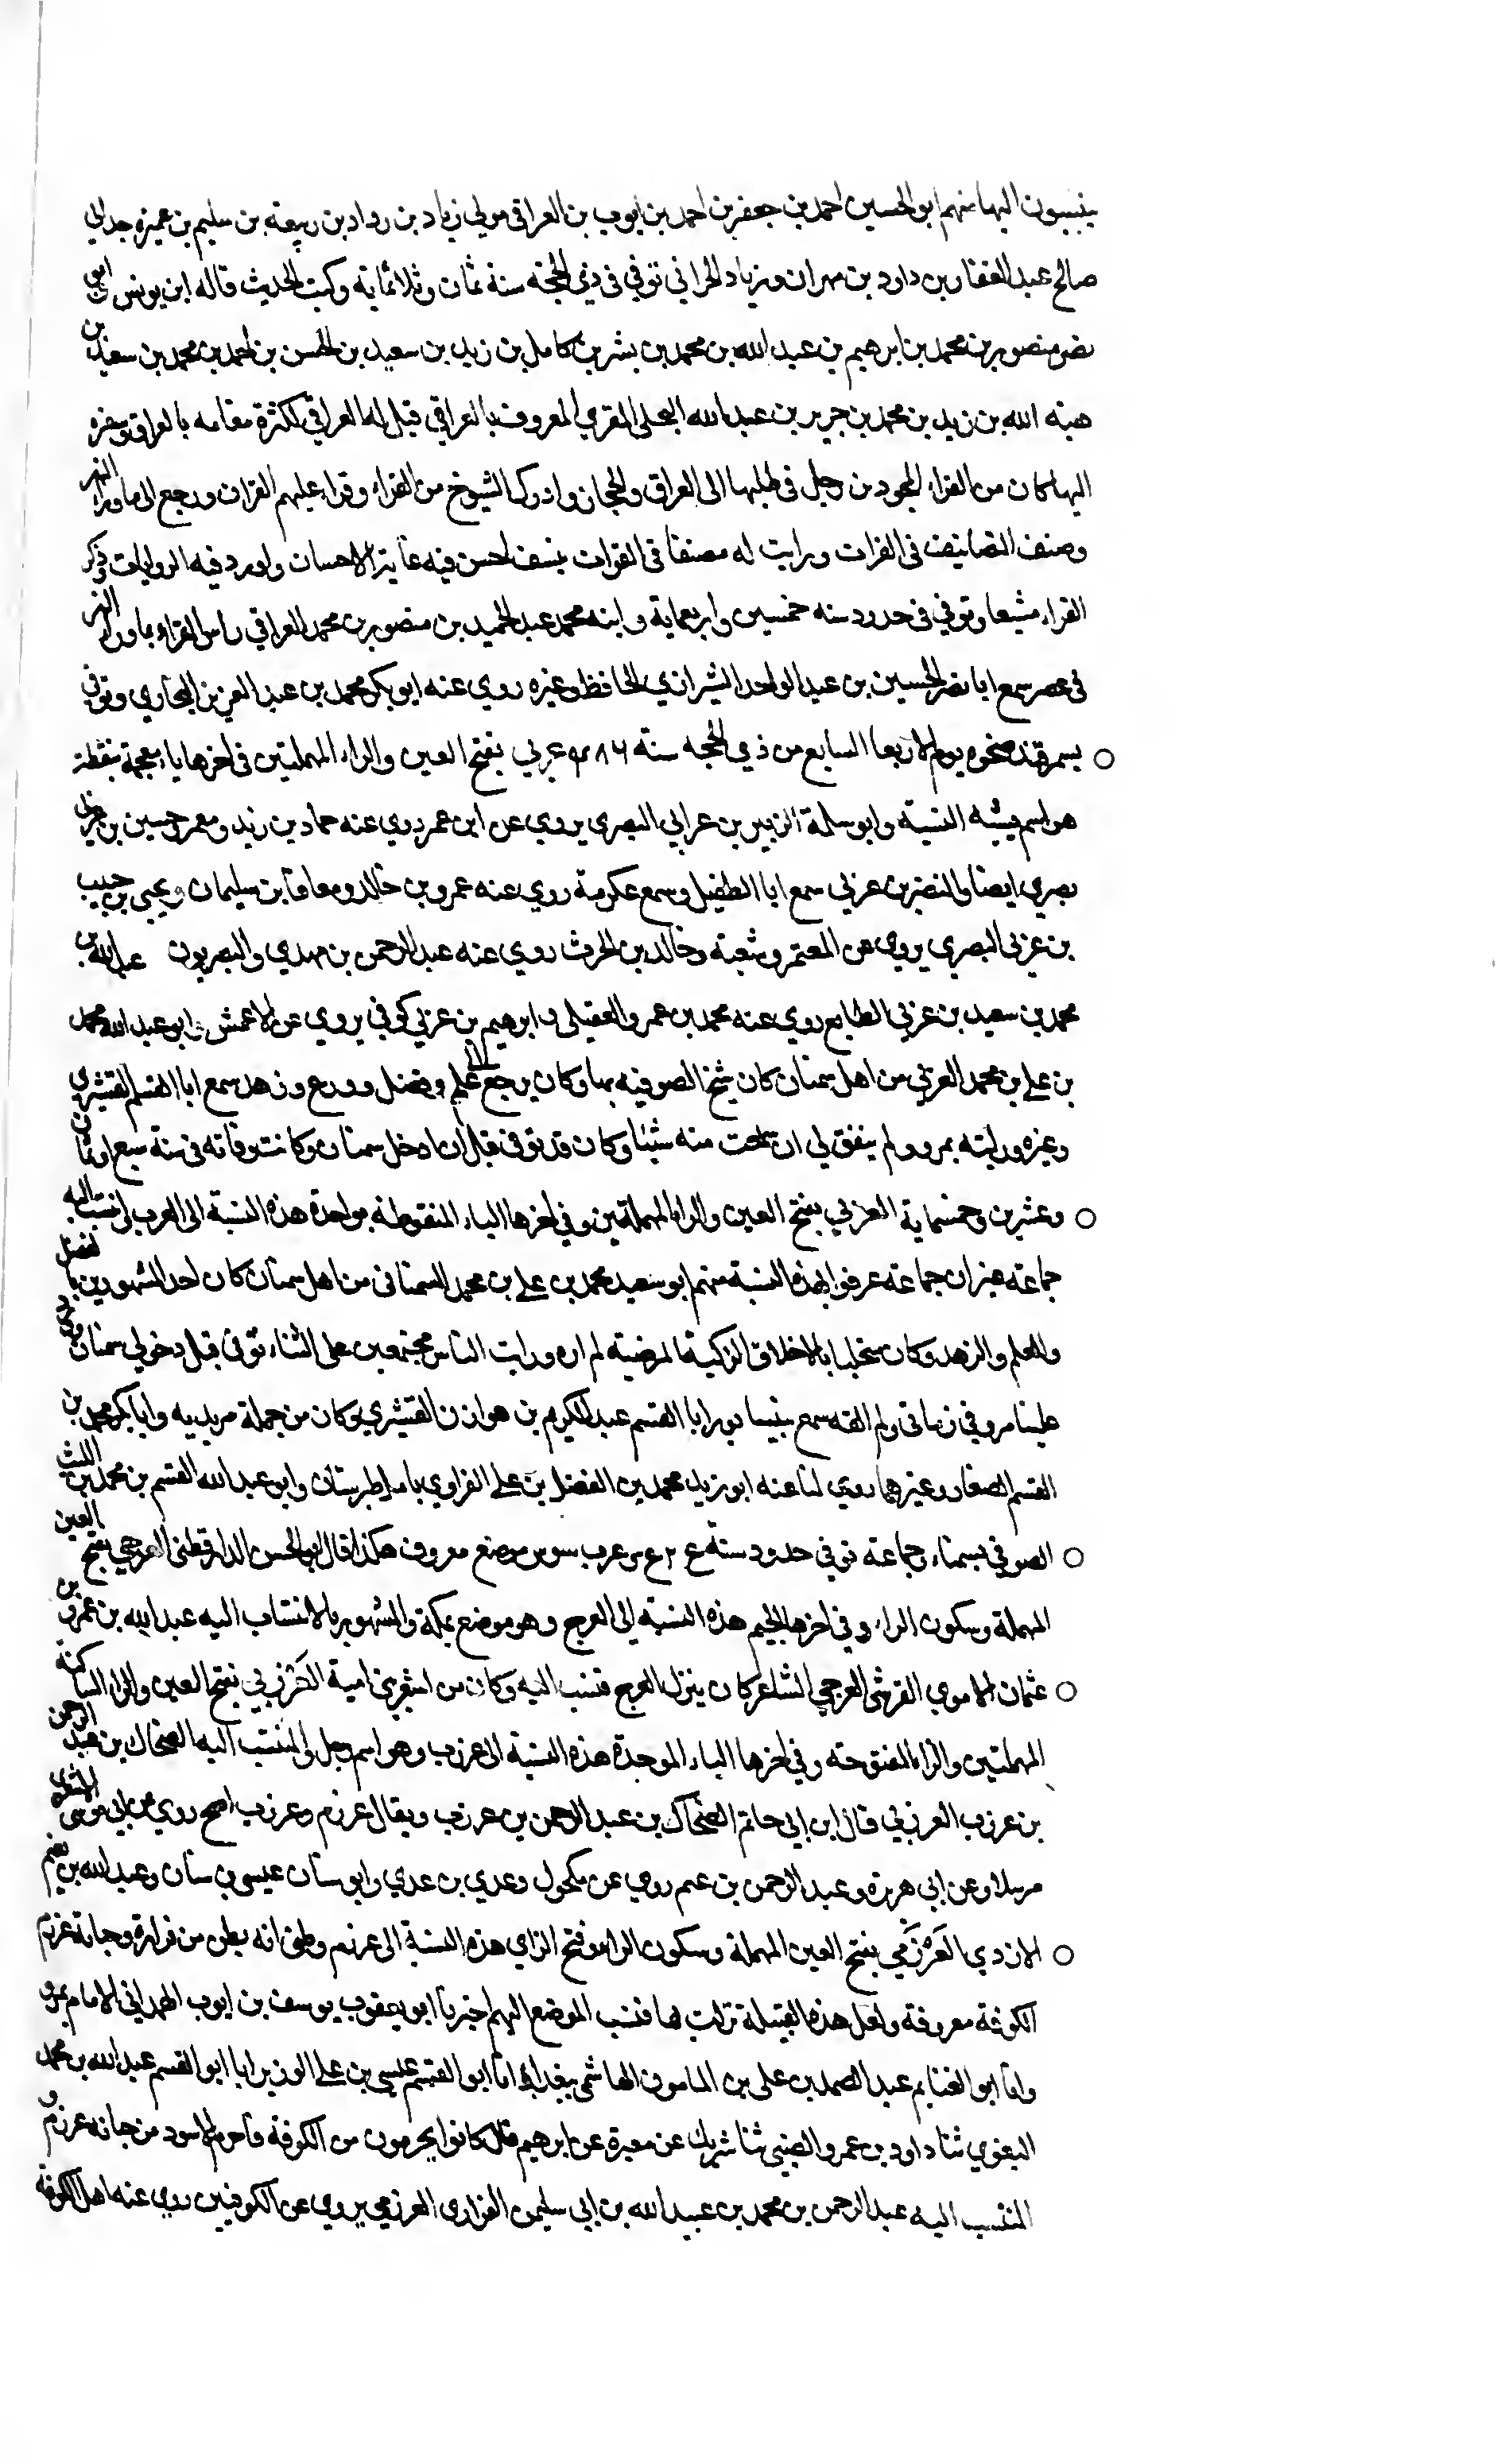 ينسبون اليها منهم ابو الحسين احمد بن جعفر بن احمد بن ايوب بن العراقي مولي زياد بن رداد بن ربيعة بن سليم بن عميره جد ابي
صالح عبد الغفار بن داود بن مهران وزياد الحراني توفي في ذي الحجه سنة ثمان وثلاثماية وكتبت الحديث قاله ابن يونس ابو
نصر منصور بن محمد بن ابرهيم بن عبد الله بن محمد بن بشر بن كامل بن زيد بن سعيد بن الحسن بن احمد بن محمد بن سعيد بن
هبة الله بن زيد بن محمد بن جرير بن عبد الله البجلي المقري المعروف بالعراقي قيل له العراقي لكثرة مقامه بالعراق وسفره
اليها كان من القراء المجودين رحل في طلبها الى العراق والحجاز وادرك الشيوخ من القراء وقراء عليهم القران ورجع الى ما وراء النهر
وصنف التصانيف في القرات ورايت له مصنفا في القرات بنسف احسن فيه غاية الاحسان واورد فيه الروايات وذكر
القراء مشبعا وتوفي في حدود سنه خمسين واربعماية وابنه محمد عبد الحميد بن منصور بن محمد العراقي راس القراء بما وراء النهر
في عصره سمع ابا نصر الحسين بن عبد الواحد الشيرازي الحافظ وغيره روي عنه ابو بكر محمد بن عبد العزيز البخاري وتوفي
بسمرقند ضحوه يوم الاربعا السابع من ذي الحجه سنة ٤٨٦ عربي بفتح العين والراء المهملتين في اخرها باء معجمة بنقطة
هو اسم يشبه النسبة وابو سلمة الزبير بن عرابي البصري يروي عن ابن عمر روي عنه حماد بن زيد ومعمر حسين بن عربي
بصري ايضا والنضر بن عربي سمع ابا الطفيل وسمع عكرمة روي عنه عمرو بن خالد ومعافا بن سليمان ويحيى بن حبيب
بن عربي البصري يروي عن المعتمر وشعبة وخالد بن الحرث روي عنه عبد الرحمن بن مهدي والبصريون عبد الله بن
محمد بن سعيد بن عربي الطايع روي عنه محمد بن عمرو العقيلي وابرهيم بن عربي كوفي يروي عن الاعمش وابو عبد الله محمد
بن علي بن محمد العربي من اهل سمنان كان شيخ الصوفيه بها وكان يرجع الى علم وفضل وورع وزهد سمع ابا القسم القشيري
وغيره ورايته بمرو ولم يتفق لي ان سمعت منه شيئا وكان قد توفي قبل ان ادخل سمنان وكانت وفاته في سنة سبع او ثمان
وعشرين وخمسماية العربي بفتح العين والراء المهملتين وفي اخرها الباء المنقوطة بواحدة هذه النسبة الى العرب وانتسب اليه
جماعة غير ان جماعة عرفوا بهذه النسبة منهم ابو سعيد محمد بن علي بن محمد السمناني من اهل سمنان كان احد المشهورين بالفضل
والعلم والزهد وكان متحليا بالاخلاق الزكية المرضيه لم اره ورايت الناس مجتمعين على الثناء توفي قبل دخولي سمنان
علينا مرو في زماني ولم القه سمع بنيسابور ابا القسم عبد الكريم بن هوازن القشيري وكان من جملة مريديه وابا بكر محمد بن
القسم الصفار وغيرهما روي لنا عنه ابو زيد محمد بن الفضل بن علي الفزاوي بامل طبرستان وابو عبد الله القسم بن محمد بن الليث
الصوفي بسمنان وجماعة توفي حدود سنة عرب سوس موضع معروف هكذا قال ابو الحسن الدارقطني العرجي بفتح العين
المهملة وسكون الراء وفي اخرها الجيم هذه النسبة الى العرج وهو موضع بمكة والمشهور بالانتساب اليه عبد الله بن عمرو بن
عثمان الاموي القرشي العرجي الشاعر كان ينزل العرج فنسب اليه وكان من اشعر بني امية العَرْزَبي بفتح العين والراء الساكنة
المهملتين والزاء المفتوحة وفي اخرها الباء الموحدة هذه النسبة الى عرزب وهو اسم رجل والمنتسب اليه الضحاك بن عبد الرحمن
بن عرزب العرزبي قال ابن ابي حاتم الضحاك بن عبد الرحمن بن عرزب ويقال عرزم وعرزب اصح روي عن ابي موسى الاشعري
مرسلا وعن ابي هريرة وعبد الرحمن بن غنم روي عن مكحول وعدي بن عدي وابو سنان عيسى بن سنان وعبد الله بن نعيم
الازدي العَرْزَمي بفتح العين المهملة وسكون الراء وفتح الزاي هذه النسبة الى عرزم وظني انه بطن من فزارة وجبانة عرزم
الكوفة معروفة ولعل هذه القبيلة نزلت بها فنسب الموضع اليهم اخبرنا ابو يعقوب يوسف بن ايوب الهمداني الامام بمرو
وانا ابو الغنايم عبد الصمد بن علي بن المامون الهاشمي ببغداد انا ابو القسم عيسى بن علي الوزير انا ابو القسم عبد الله بن محمد
البغوي ثنا داود بن عمرو الضبي ثنا شريك عن مغيرة عن ابرهيم قال كانوا يحرمون من الكوفة واحرم الاسود من جبانه عرزم و
المنتسب اليه عبد الرحمن بن محمد بن عبيد الله بن ابي سليمن الفزاري العرزمي يروي عن الكوفيين روي عنه اهل الكوفة